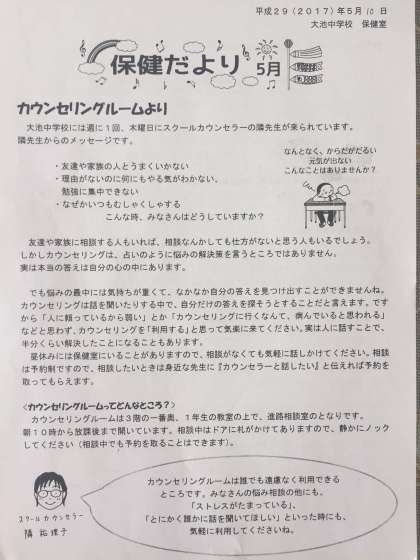 平成２９（２０１７）年５月 10 日
大池中学校　保健室
保健だより 5月
カウンセリングルームより
大池中学校には週に１回、木曜日にスクールカウンセラーの隣先生が来られています。
隣先生からのメッセージです。
なんとなく、からだがだるい
元気が出ない
こんなことはありませんか？
・友達や家族の人とうまくいかない
・理由がないのに何にもやる気がわかない、
勉強に集中できない
・なぜかいつもむしゃくしゃする
こんな時、みなさんはどうしていますか？
友達や家族に相談する人もいれば、相談なんかしても仕方がないと思う人もいるでしょう。
しかしカウンセリングは、占いのように悩みの解決策を言うところではありません。
実は本当の答えは自分の心の中にあります。
でも悩みの最中には気持ちが重くて、なかなか自分の答えを見つけ出すことができませんね。
カウンセリングは話を聞いたりする中で、自分だけの答えを探そうとすることだと言えます。です
から「人に頼っているから弱い」とか「カウンセリングに行くなんて、病んでいると思われる」
などと思わず、カウンセリングを「利用する」と思って気楽に来てください。実は人に話すことで、
半分くらい解決したことになることもあります。
昼休みには保健室にいることがありますので、相談がなくても気軽に話しかけてください。相談
は予約制ですので、相談したいときは身近な先生に『カウンセラーと話したい』と伝えれば予約を
取ってもらえます。
＜カウンセリングルームってどんなところ？＞
カウンセリングルームは３階の一番奥、１年生の教室の上で、進路相談室のとなりです。
朝１０時から放課後まで開いています。相談中はドアに札がかけてありますので、静かにノック
してください（相談中でも予約を取ることはできます）。
カウンセリングルームは誰でも遠慮なく利用できる
ところです。みなさんの悩み相談の他にも、
「ストレスがたまっている」、
「とにかく誰かに話を聞いてほしい」といった時にも、
気軽に利用してくださいね。
スクールカウンセラー
隣 祐理子